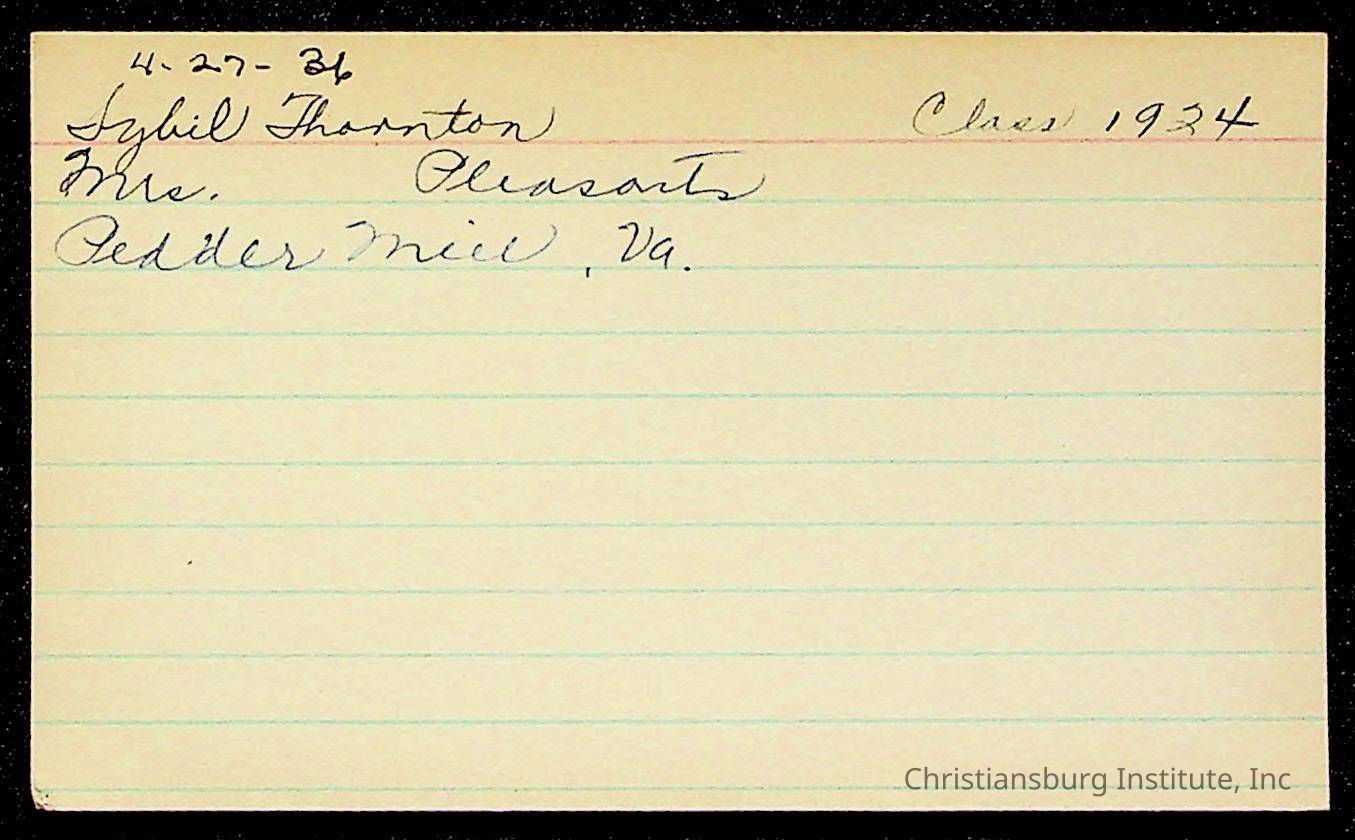 4-27-36
Sybil Thornton Class 1934
Mrs. Pleasants
Pedder Mill, Va.
Christiansburg Institute, Inc